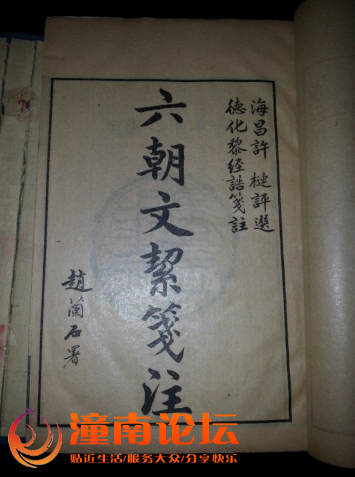 海昌許槤評選
德化黎經誥箋註
六朝文絜箋注
趙蘭石署
潼南论坛
贴近生活/服务大众/分享快乐